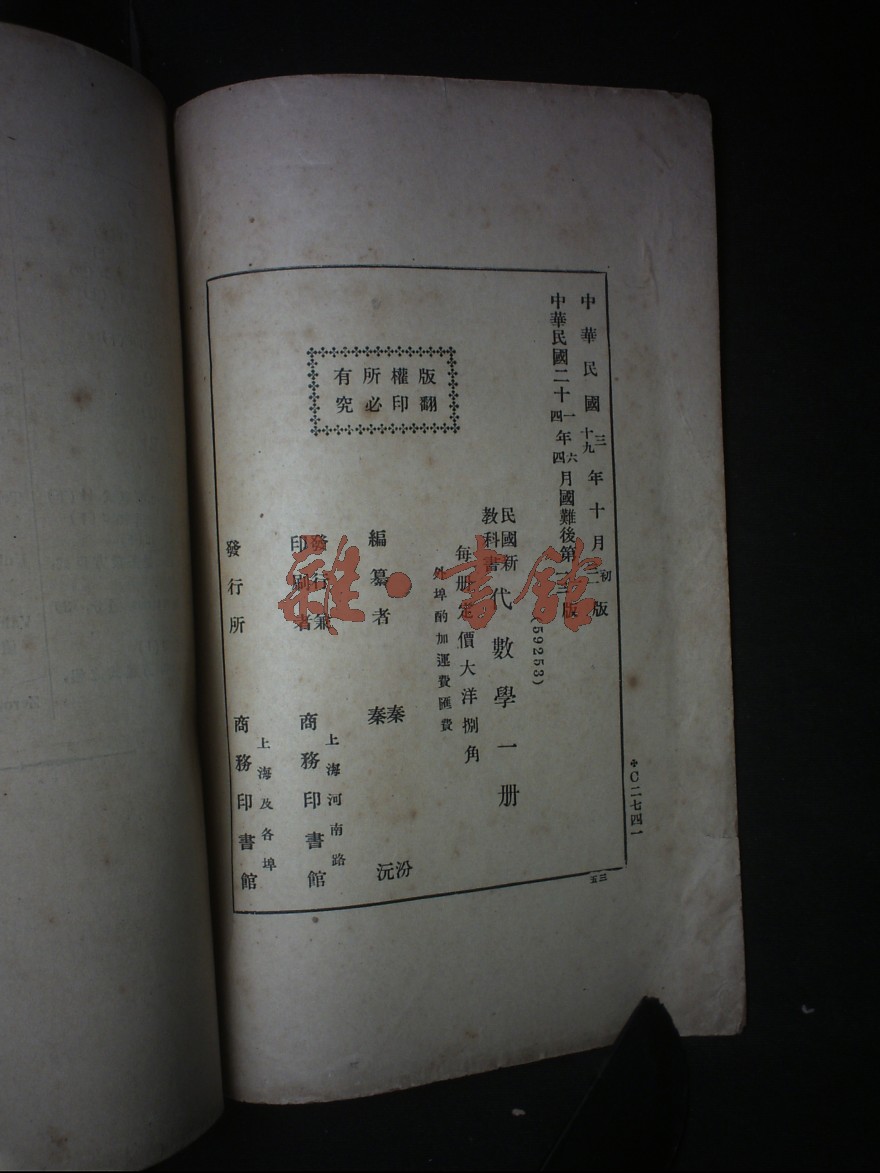 中華民國三十九年十月初三版
中華民國二十一四年六四月國難後第一三版
(59253)
民國新教科書 代數學一册
每册定價大洋捌角
外埠酌加運費匯費
版權所有
翻印必究
編纂者 秦汾 秦沅
發行兼印刷者 上海河南路 商務印書館
發行所 上海及各埠 商務印書館
C二七四一
三五
雜·書館